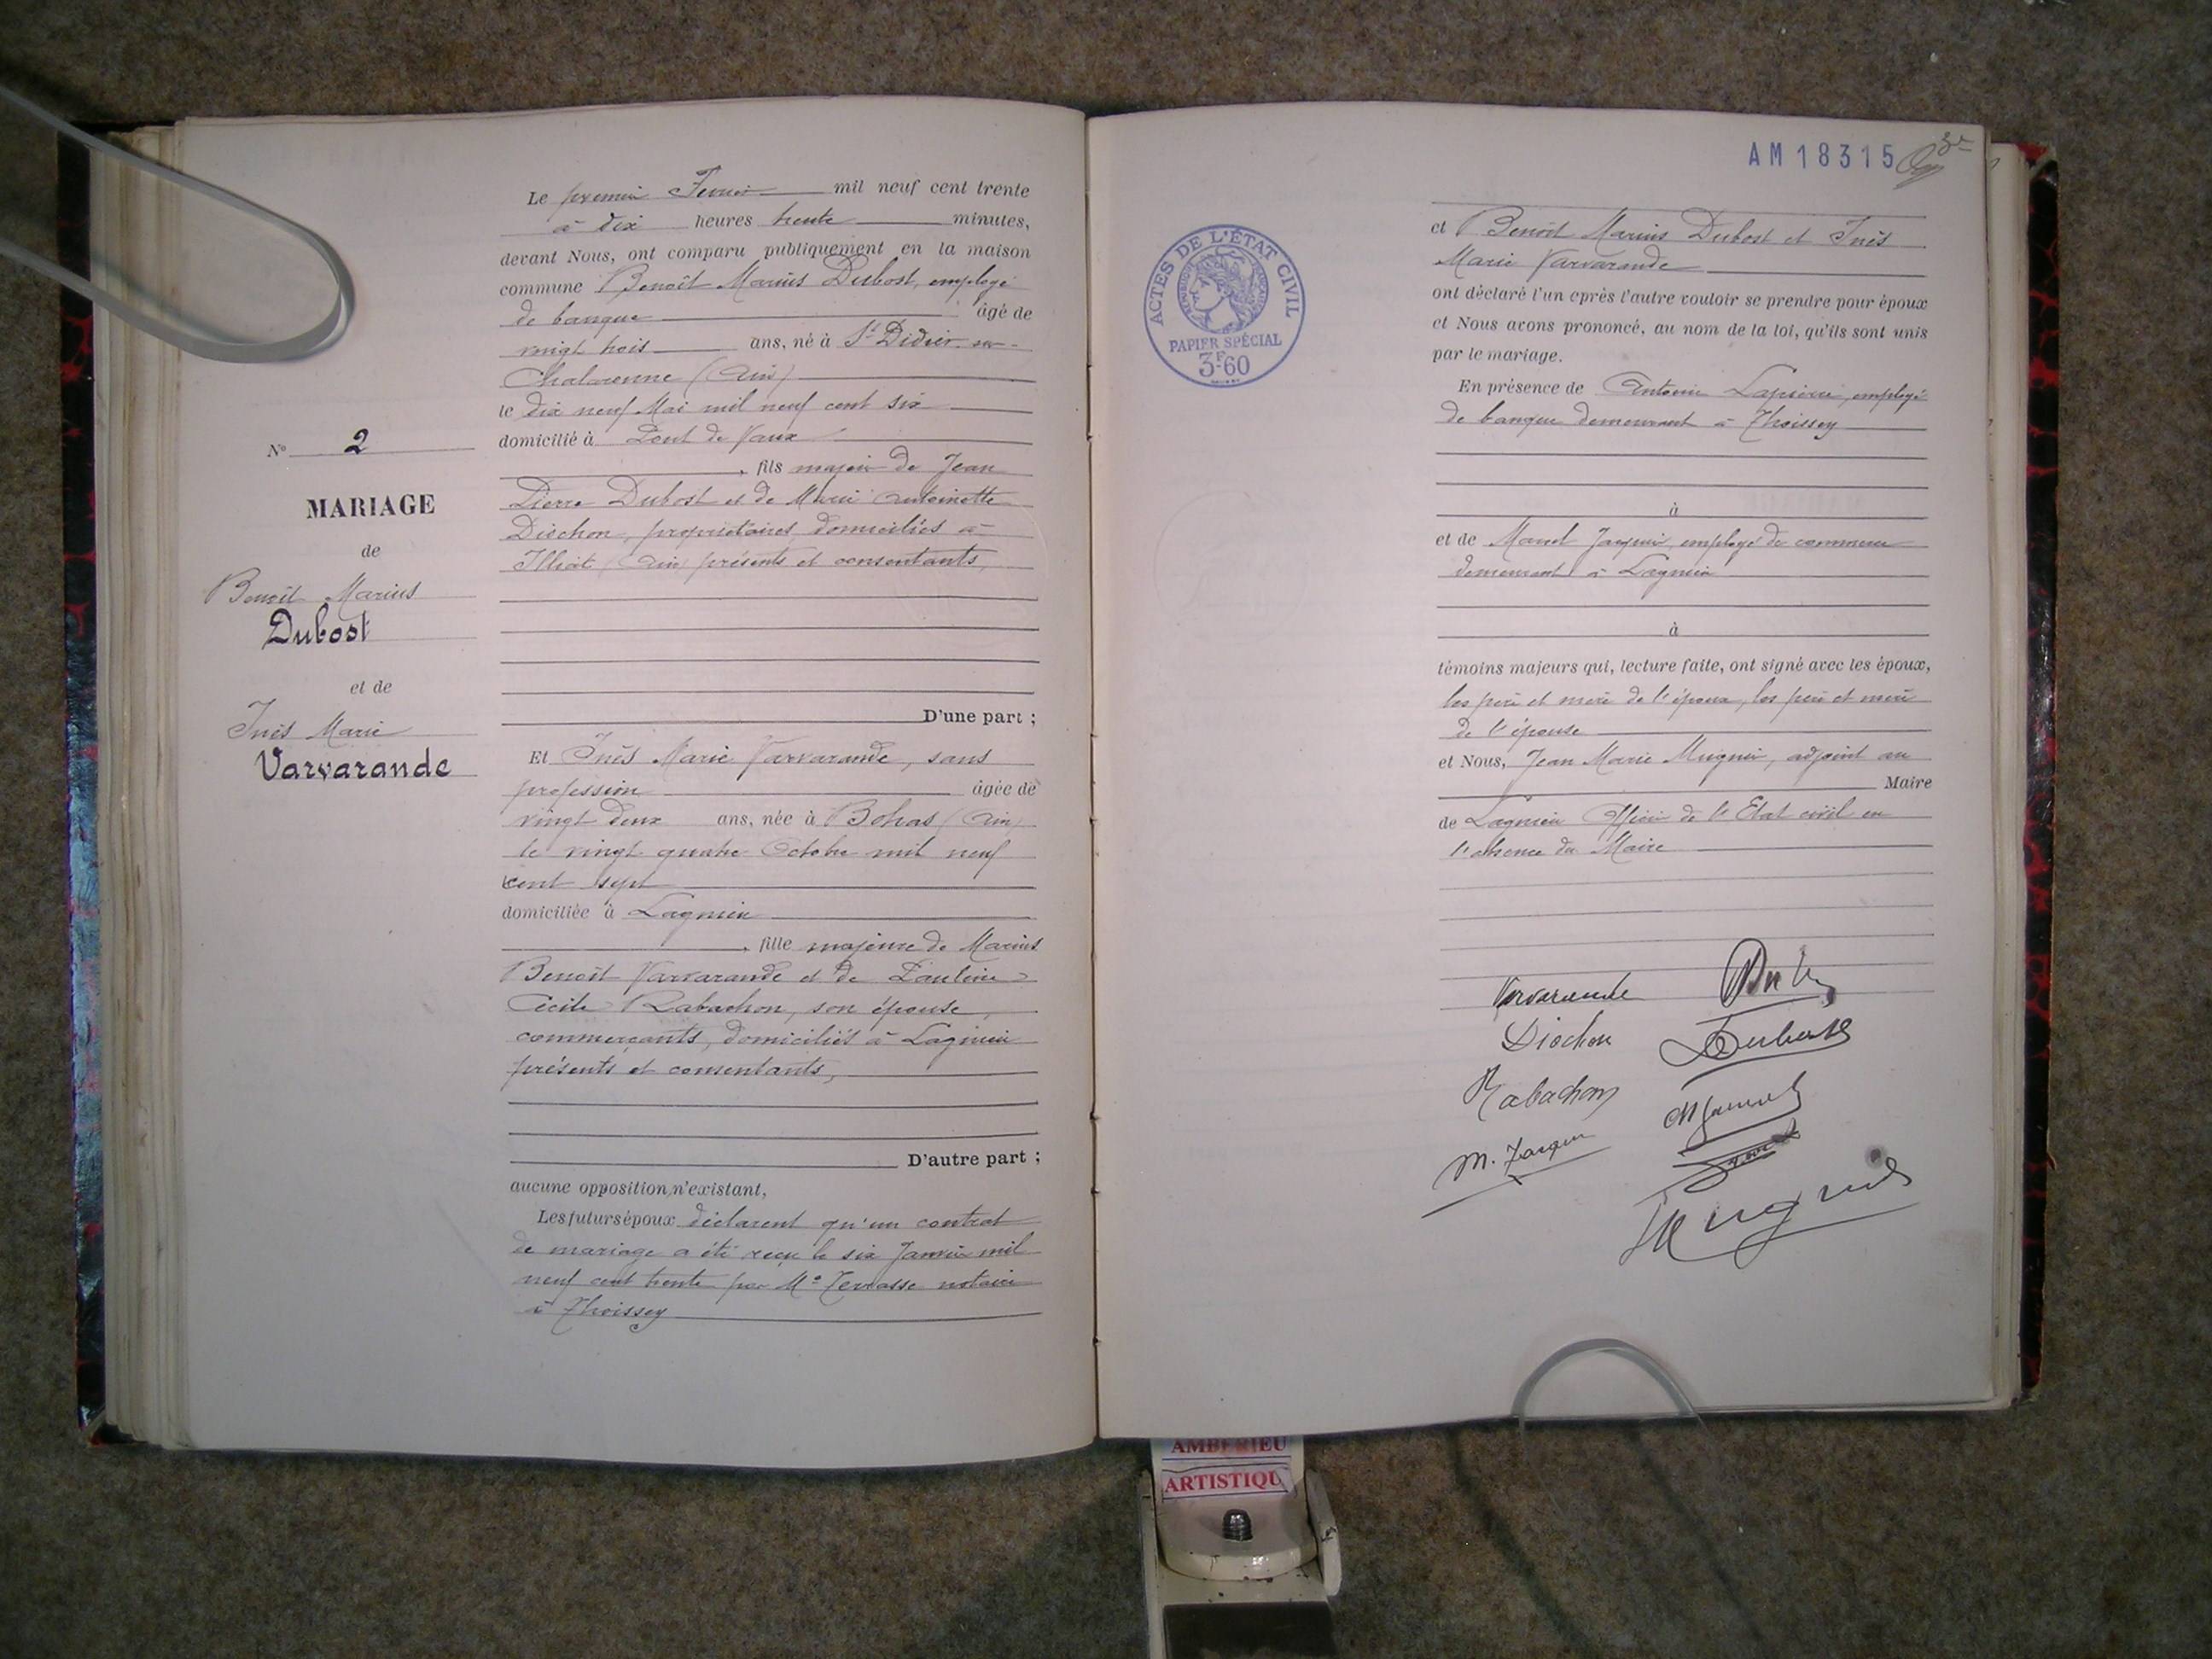 N° 2
MARIAGE
de
Benoît Marius
Dubost
et de
Inès Marie
Varvarande
Le premier Fevrier mil neuf cent trente
à dix heures trente minutes,
devant Nous, ont comparu publiquement en la maison
commune Benoît Marius Dubost, employé
de banque âgé de
vingt trois ans, né à St Didier-sur-
Chalaronne (Ain)
le dix neuf Mai mil neuf cent six
domicilié à Pont de Vaux
, fils majeur de Jean
Pierre Dubost et de Marie Antoinette
Diochon, propriétaires, domiciliés à
Illiat (Ain) présents et consentants,
D'une part ;
Et Inès Marie Varvarande, sans
profession âgée de
vingt deux ans, née à Bohas (Ain)
le vingt quatre Octobre mil neuf
cent sept
domiciliée à Lagnieu
, fille majeure de Marius
Benoît Varvarande et de Pauline
Cécile Rabachon, son épouse,
commerçants, domiciliés à Lagnieu
présents et consentants,
D'autre part ;
aucune opposition n'existant,
Les futurs époux déclarent qu'un contrat
de mariage a été reçu le six Janvier mil
neuf cent trente par Me Terrasse notaire
à Thoissey
AM18315
3e
ACTES DE L'ÉTAT CIVIL
PAPIER SPÉCIAL
3F60
et Benoît Marius Dubost et Inès
Marie Varvarande
ont déclaré l'un après l'autre vouloir se prendre pour époux
et Nous avons prononcé, au nom de la loi, qu'ils sont unis
par le mariage.
En présence de Antonin Lapierre, employé
de banque demeurant à Thoissey
à
et de Marcel Jacquin, employé de commerce
demeurant à Lagnieu
à
témoins majeurs qui, lecture faite, ont signé avec les époux,
les père et mère de l'époux, les père et mère
de l'épouse
et Nous, Jean Marie Mugnier, adjoint au
Maire
de Lagnieu Officier de l'Etat civil en
l'absence du Maire
Varvarande
Diochon Dubost
Rabachon
M. Jacquin
Mugnier
AMBERIEU
ARTISTIQU